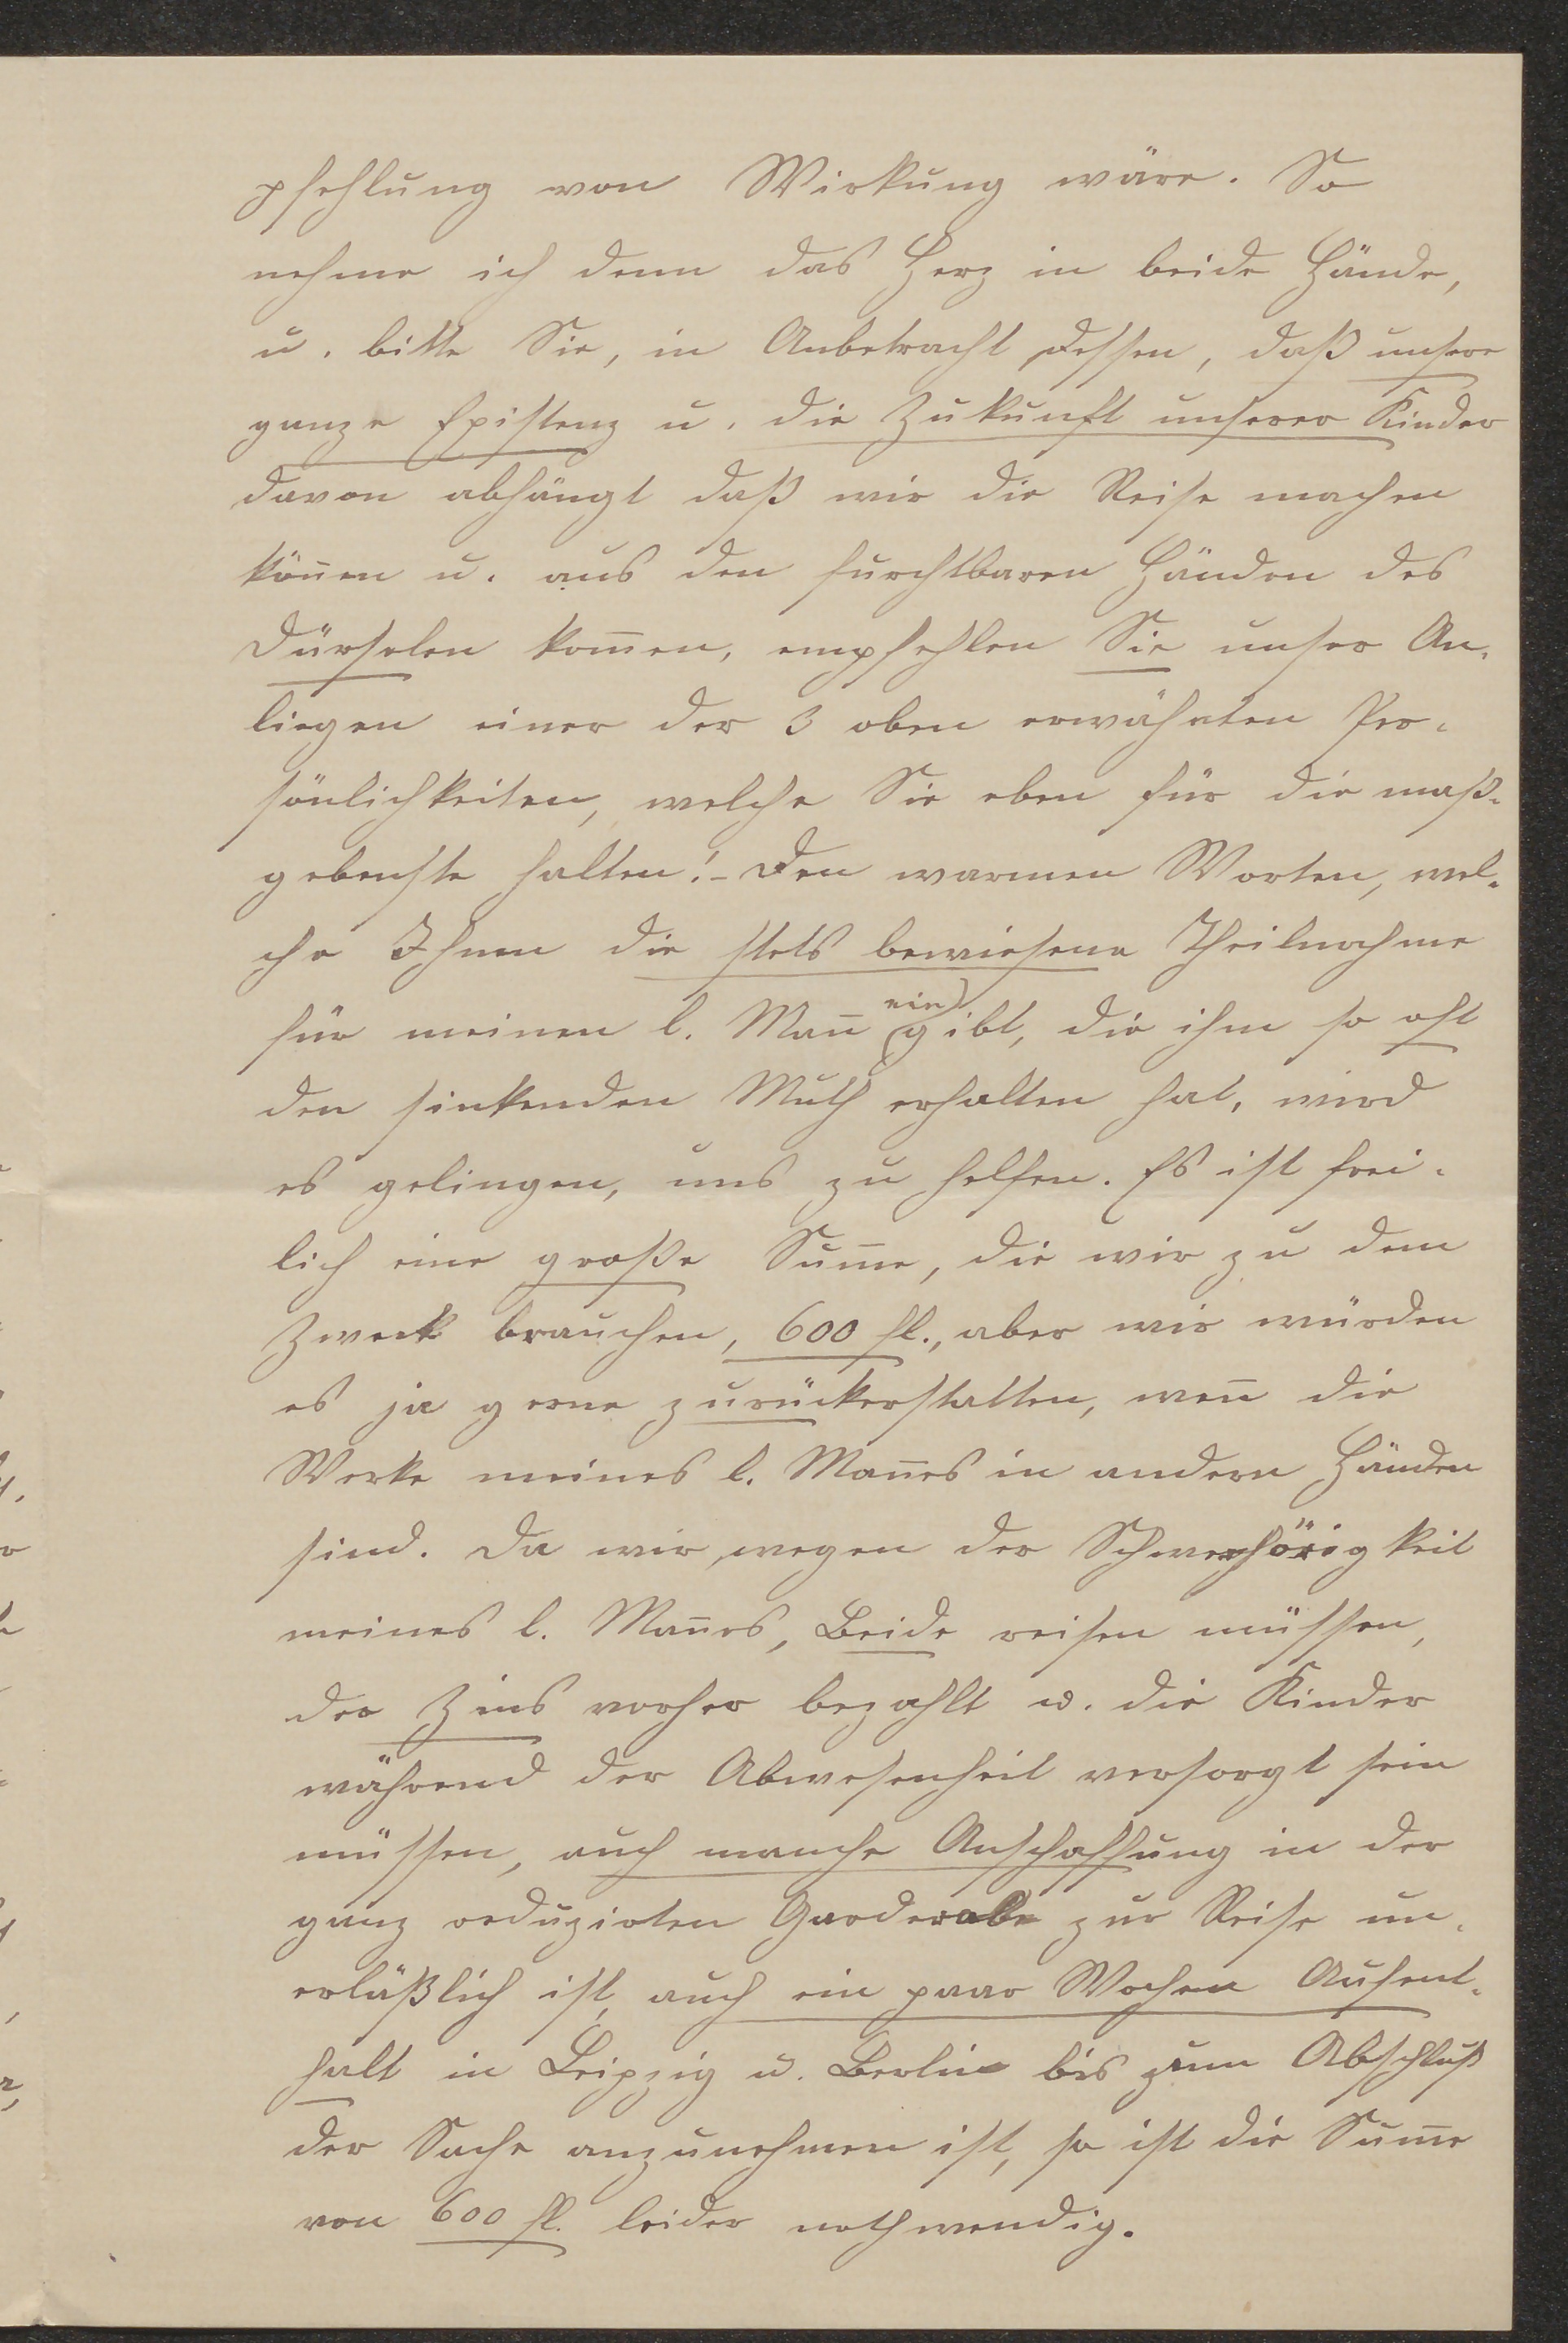 pfehlung von Wirkung wäre. So
nehme ich denn das Herz in beide Hände,
u. bitte Sie, in Anbetracht dessen, daß unsere
ganze Existenz u. die Zukunft unserer Kinder
davon abhängt daß wir die Reise machen
kön̄en u. aus den furchtbaren Händen des
Dürselen kom̄en, empfehlen Sie unser An-
liegen einer der 3 oben erwähnten Per-
sönlichkeiten, welche Sie eben für die maß-
gebenste halten! - Den warmen Worten, wel-
che Ihnen die stets bewiesene Theilnahme
für meinen l. Man̄ eingibt, die ihm so oft
den sinkenden Muth erhalten hat, wird
es gelingen, uns zu helfen. Es ist frei-
lich eine große Sum̄e, die wir zu dem
Zweck brauchen, 600 fl., aber wir würden
es ja gerne zurückerstatten, wen̄ die
Werke meines l. Man̄es in andern Händen
sind. Da wir, wegen der Schwerhörigkeit
meines l. Man̄es, Beide reisen müssen,
der Zins vorher bezahlt u. die Kinder
während der Abwesenheit versorgt sein
müssen, auch manche Anschaffung in der
ganz reduzirten Garderobe zur Reise un-
erläßlich ist, auch ein paar Wochen Aufent-
halt in Leipzig u. Berlin bis zum Abschluß
der Sache anzunehmen ist, so ist die Sum̄e
von 600 fl. leider nothwendig.